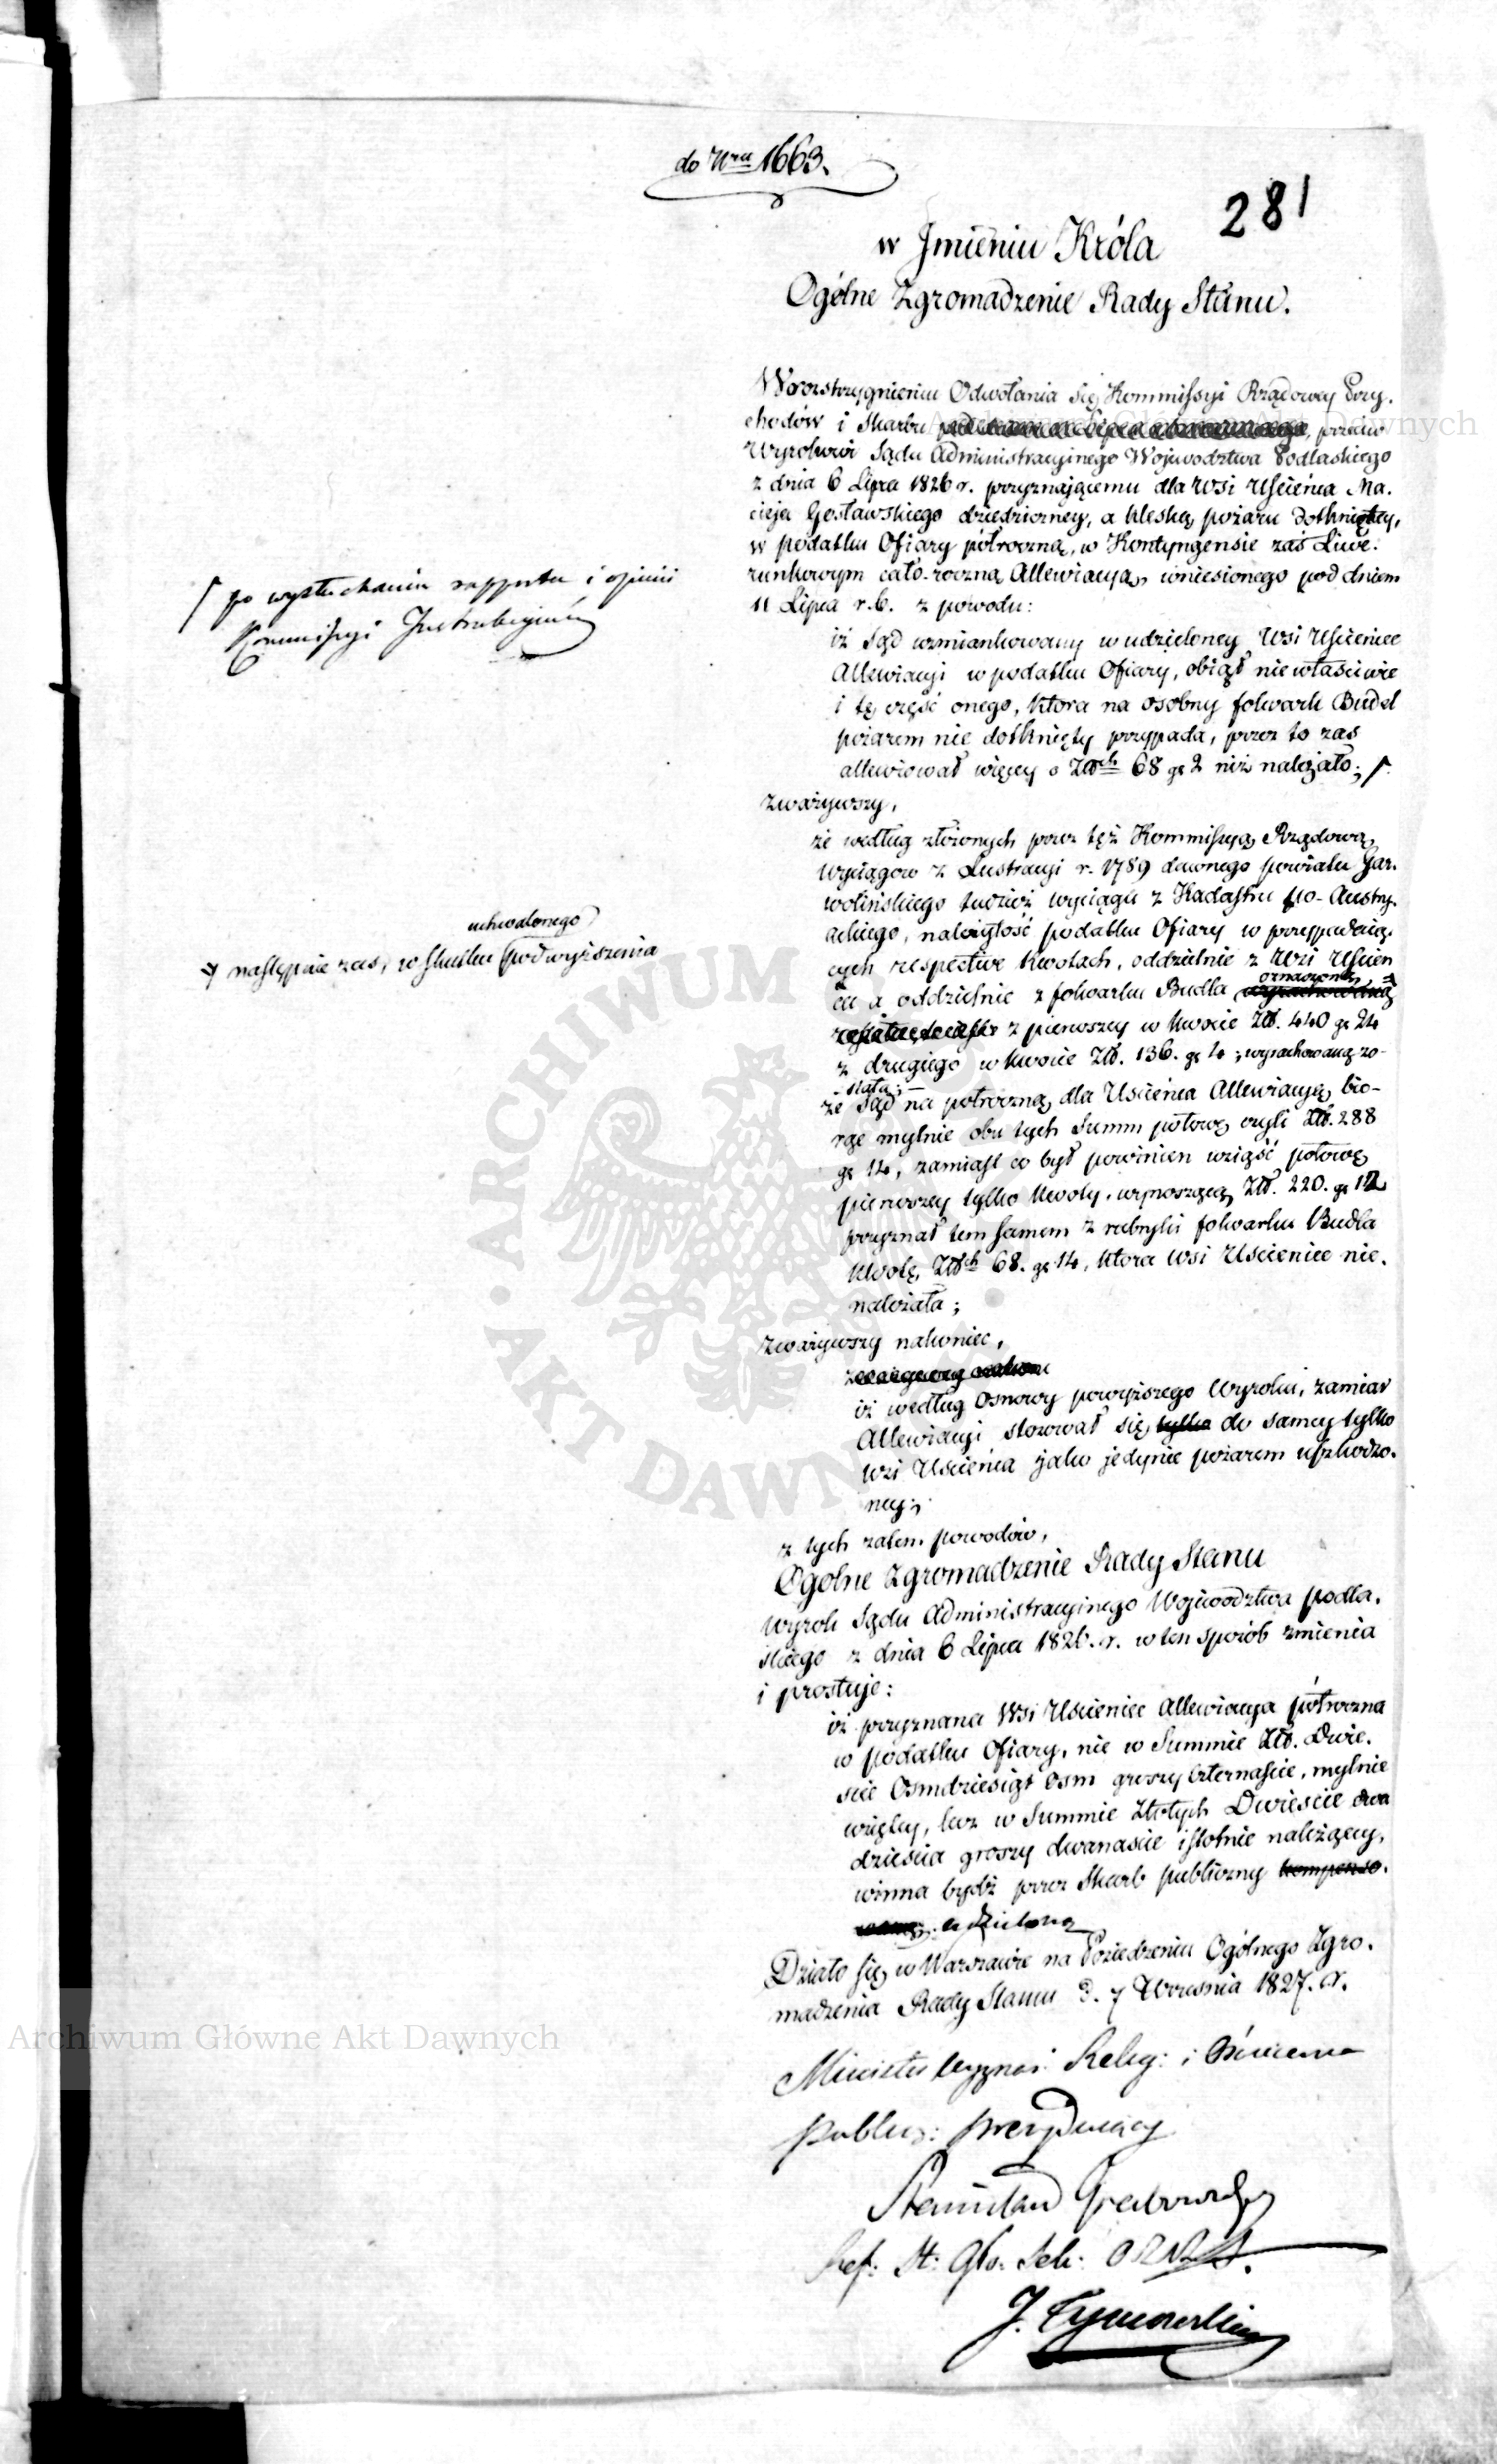 do Nru 1663.
281
w Jmieniu Króla
Ogólne Zgromadzenie Rady Stanu.
W rozstrzygnieniu Odwołania się Kommissyi Rządowey Przy-
chodów i Skarbu przeciw
Wyrokowi Sądu Administracyinego Woiewodztwa Podlaskiego
z dnia 6 Lipca 1826 r. przyznaiącemu dla Wsi Uścieńca Ma-
cieja Gosławskiego dziedziczney, a klęską pożaru dotkniętey,
w podatku Ofiary półroczną, w Kontyngensie zaś Liwe-
runkowym cało-roczną Allewiacyą, wniesionego pod dniem
11 Lipca r. b. z powodu:
iż Sąd wzmiankowany w udzieloney Wsi Uścieniec
Allewiacyi w podatku Ofiary, obiął niewłaściwie
i tę część onego, która na osobny folwark Budel
pożarem nie dotknięty przypada, przez to zaś
allewiował więcey o Złtch 68 gr 2 niż należało;
/ po wysłuchaniu rapportu i opinii
Kommissyi Instrukcyiney
zważywszy,
że według złożonych przez tęż Kommissyą Rządową,
wyciągow z Lustracyi r. 1789 dawnego powiatu Gar-
wolińskiego tudzież wyciągu z Kadastru po-Austry-
ackiego, należytość podatku Ofiary w przypadaią-
cych respective kwotach, oddzielnie z Wsi Uścien
ca a oddzielnie z folwarku Budla oznaczona
uchwalonego
następnie zaś, w skutku podwyższenia
z pierwszey w kwocie Złt. 440 gr 24
z drugiego w kwocie Złt. 136. gr 4; wyrachowaną zo-
stała;
że Sąd na półroczną dla Uścieńca Allewiacyą, bio-
rąc mylnie obu tych Summ połowę czyli Złt. 288
gr 14, zamiast co był powinien wziąść połowę
pierwszey tylko kwoty, wynoszącą Złt. 220. gr 12
przyznał tem samem z rubryki folwarku Budla
kwotę Złtch 68. gr 14, która Wsi Uścieniec nie-
należała;
zważywszy nakoniec,
zważywszy nakoniec
iż według Osnowy powyższego Wyroku, zamiar
Allewiacyi stosował się tylko do samey tylko
wsi Uścieńca jako jedynie pożarem uszkodzo-
ney;
z tych zatem powodów,
Ogolne Zgromadzenie Rady Stanu
Wyrok Sądu Administracyinego Woiewodztwa podla-
skiego z dnia 6 Lipca 1826. r. w ten sposób zmienia
i prostuje:
iż przyznana Wsi Uścieniec Allewiacya półroczna
w podatku Ofiary, nie w Summie Złt. Dwie-
scie Osmdziesiąt Osm groszy Czternaście, mylnie
wziętey, lecz w Summie Złotych Dwieście dwa
dzieścia groszy dwanaście istotnie należącey,
winna bydź przez Skarb publiczny kompenso-
waną. udzieloną
Działo się w Warszawie na Posiedzeniu Ogólnego Zgro-
madzenia Rady Stanu d. 7 Września 1827. r.
Minister Wyznań Relig: i Oświecenia
Publicz: Prezyduiący
Stanisław Grabowski
Ref: St: Gło: Sek:
J. Tymowski
ARCHIWUM
AKT DAWNYCH
Archiwum Główne Akt Dawnych
Archiwum Główne Akt Dawnych